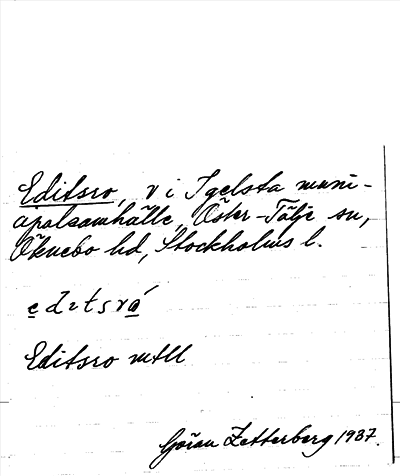 Editsro, v i Igelsta muni-
cipalsamhälle, Öster-Tälje sn,
Öknebo hd, Stockholms l.
edιtsrǻ
Editsro mtll
Göran Zetterberg 1937.